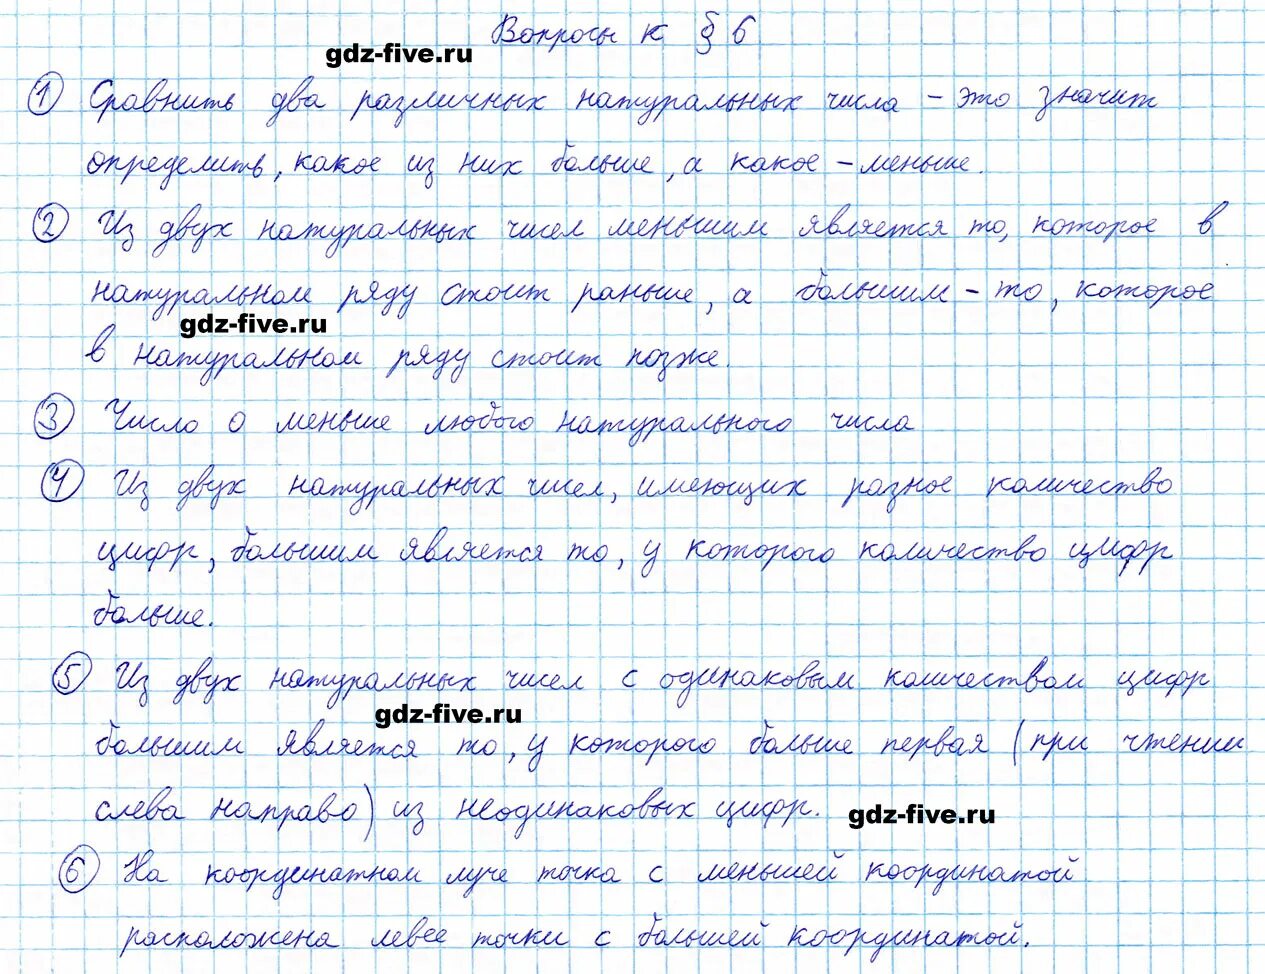 Вопросы к § 6
gdz-five.ru
1 Сравнить два различных натуральных числа - это значит
определить, какое из них больше, а какое - меньше.
2 Из двух натуральных чисел меньшим является то, которое в
натуральном ряду стоит раньше, а большим - то, которое
gdz-five.ru
в натуральном ряду стоит позже.
3 Число 0 меньше любого натурального числа
4 Из двух натуральных чисел, имеющих разное количество
цифр, большим является то, у которого количество цифр
больше.
5 Из двух натуральных чисел с одинаковым количеством цифр
gdz-five.ru
большим является то, у которого больше первая (при чтении
слева направо) из неодинаковых цифр.
gdz-five.ru
6 На координатном луче точка с меньшей координатой
расположена левее точки с большей координатой.